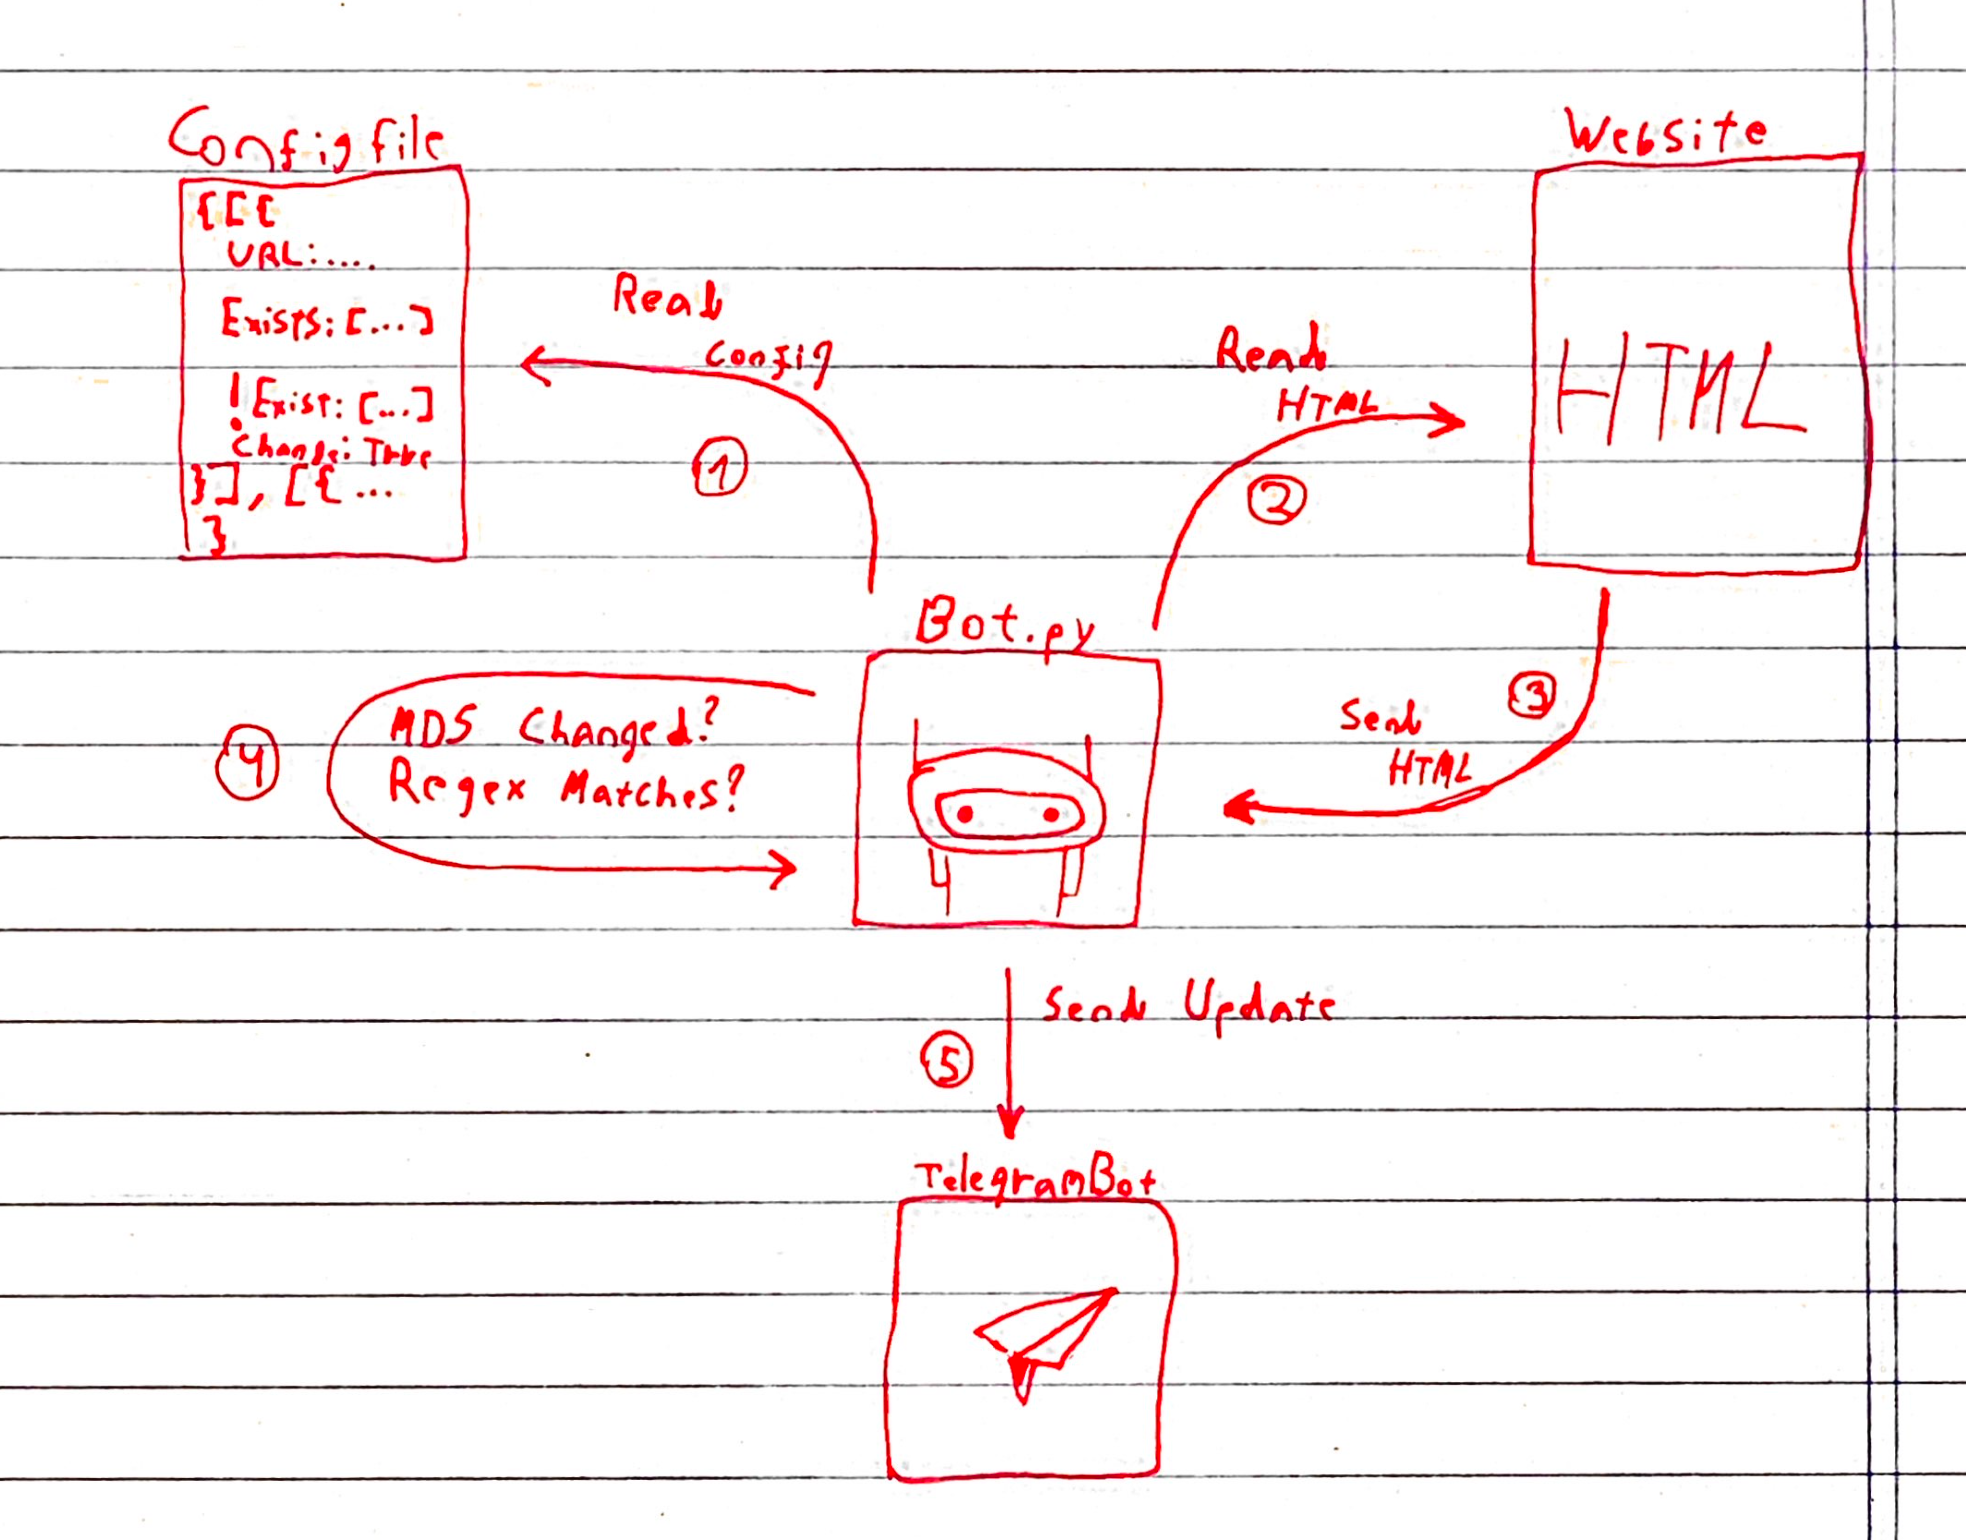 Config file
{[{
URL:....
Exists: [...]
!Exist: [...]
Change: True
}], [{ ...
}
Read
config
1
Website
HTML
Read
HTML
2
Bot.py
3
Send
HTML
4
MD5 Changed?
Regex Matches?
5
Send Update
TelegramBot